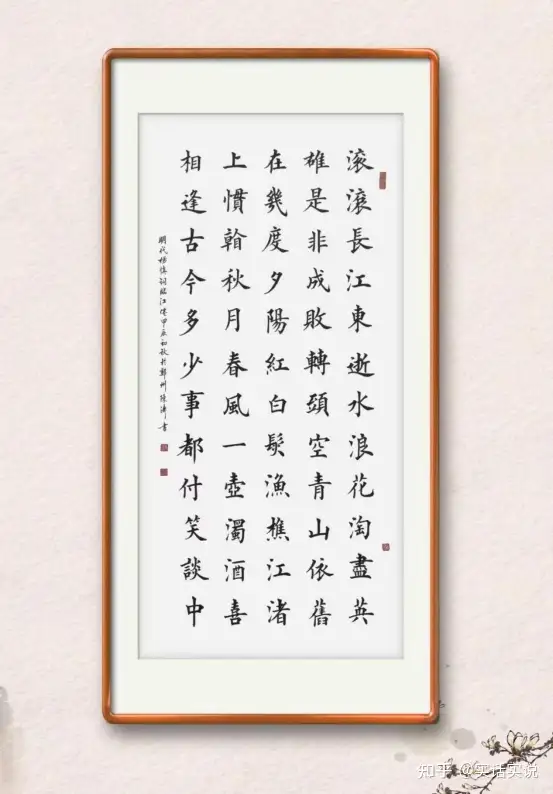 滚滚長江東逝水浪花淘盡英
雄是非成敗轉頭空青山依舊
在幾度夕陽紅白髮漁樵江渚
上慣翰秋月春風一壺濁酒喜
相逢古今多少事都付笑談中
明代楊慎詞臨江僊甲辰初秋於鄭州陳濤書
知乎 @实话实说